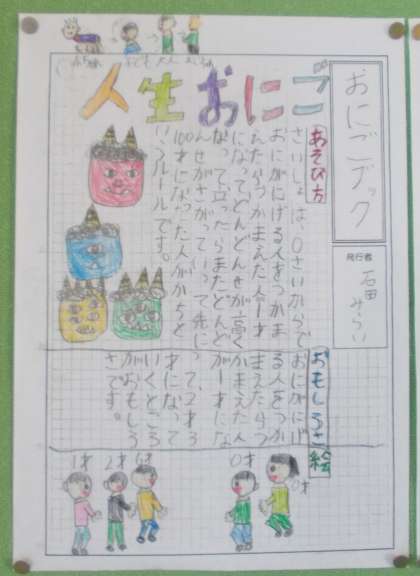 子ども
大人
人生おにご
おにごブック
発行者
石田みらい
あそび方
さいしょは、0さいからで
おにがにげる人をつかま
えたらつかまえた人が一才
になってどんどんせが高く
なって立ったらまたどんど
んせがさがっていって先に
100才になった人がかちと
いうルールです。
おもしろさ
おにがにげ
る人をつか
まえたらつ
かまえた人
が一才にな
って、2才3
才になって
いくところ
がおもしろ
さです。
絵
1才
2才
0才
0才